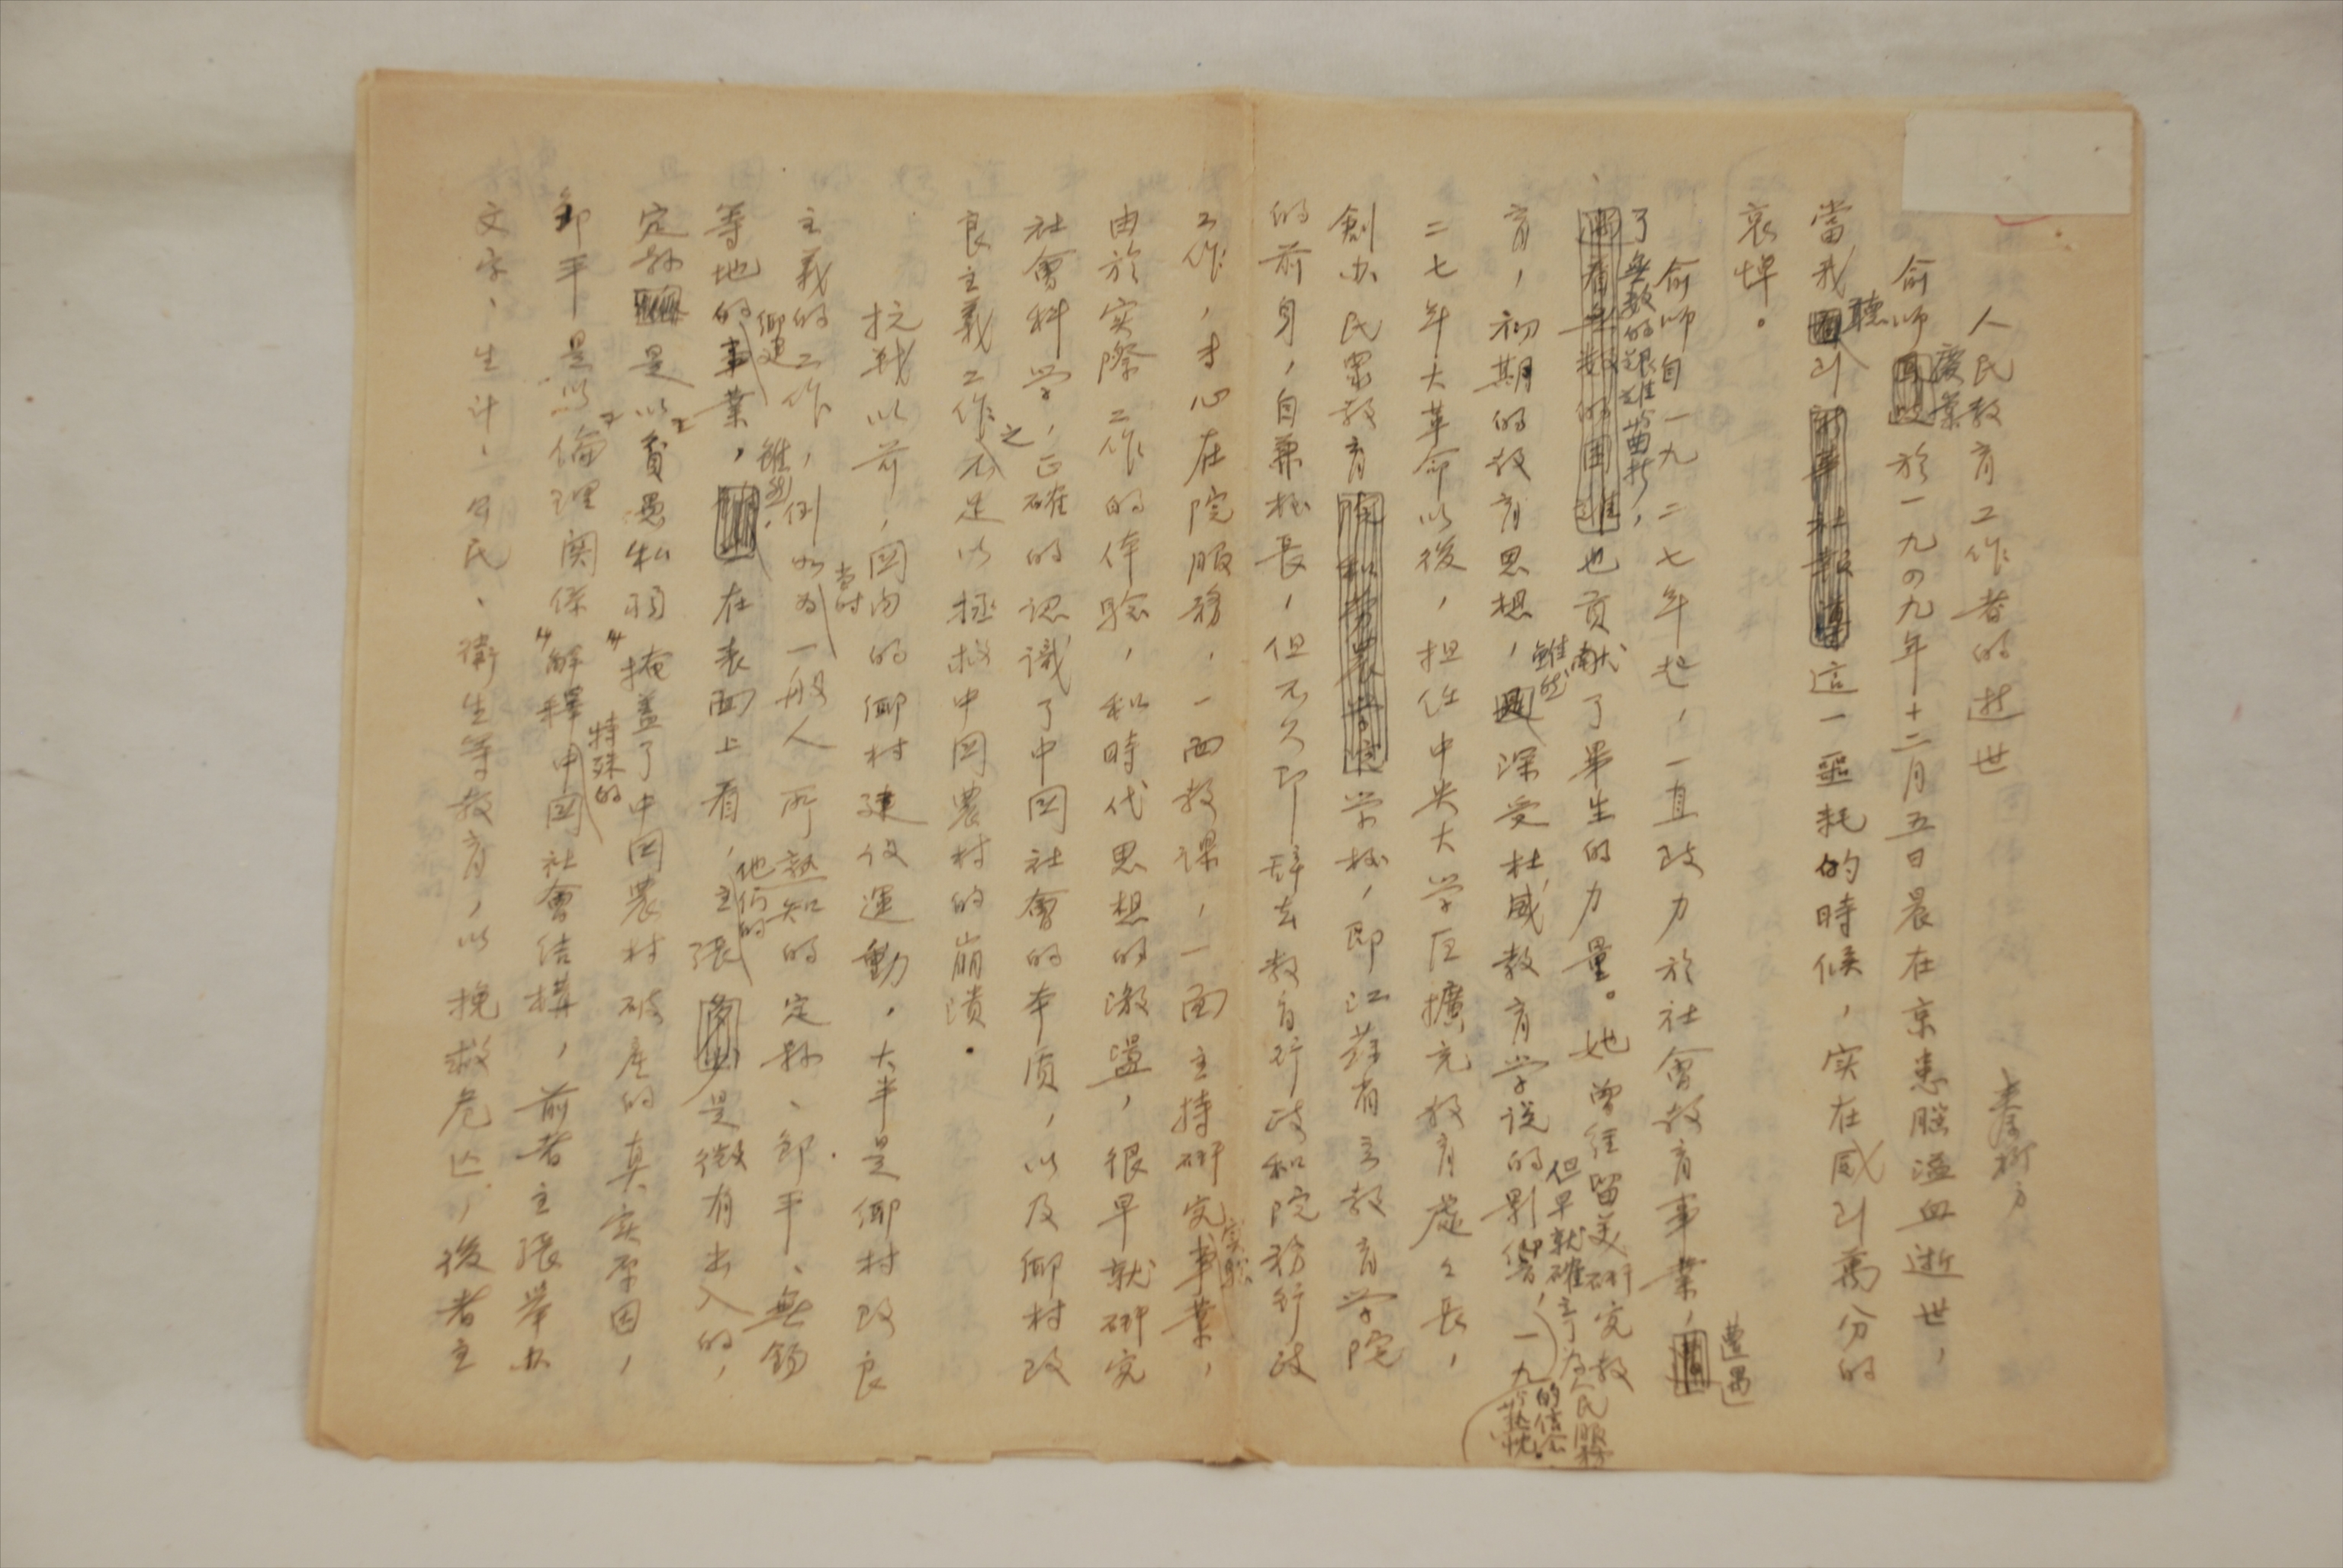 人民教育工作者的逝世
俞師慶棠於一九四九年十二月五日晨在京患腦溢血逝世，
當我聽到這一噩耗的時候，实在感到萬分的
哀悼。
俞师自一九二七年起，一直致力於社會教育事業，遭遇
了無数的艱难当曲折，
也貢献了畢生的力量。她曾經留美研究教
育，初期的教育思想，雖然深受杜威教育学说的影响，但早就確立了为人民服務的信念热忱。一九
二七年大革命以後，担任中央大学区擴充教育處处長，
創办民眾教育学校，即江蘇省立教育学院
的前身，自兼校長，但不久即辞去教育行政和院務行政
工作，才心在院服務，一面教课，一面主持研究实验事業，
由於实際工作的体验，和時代思想的激盪，很早就研究
社會科学，正確的認識了中国社會的本质，以及鄉村改
良主義工作之不足以拯救中国農村的崩潰。
抗戰以前，国内的鄉村建设運動，大半是鄉村改良
主義的工作，例如为当时一般人所熟知的定縣、邹平、無錫
等地的鄉建事業，雖然在表面上看，他们的主張是微有出入的，
定縣是以“貧愚私弱”掩蓋了中国農村破產的真实原因，
邹平是以“倫理関係”解釋特殊的中国社會结構，前者主張举办
文字、生计、公民、衛生等教育，以挽救危亡，後者主